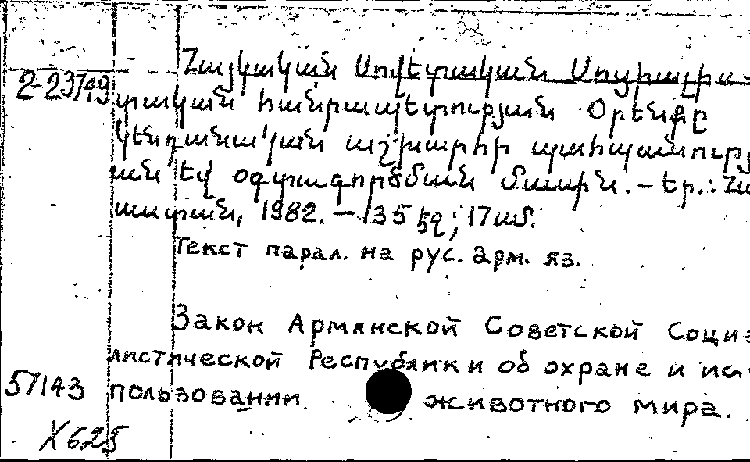 Հայկական Սովետական Սոցիալիս-
2-23749 տական հանրապետության Օրենքը
կենդանական աշխարհի պահպանությ
ան եվ օգտագործման մասին. – Եր.: Հա
աստան, 1982. – 135 էջ; 17սմ.
Текст парал. на рус. арм. яз.
Закон Армянской Советской Социа
листической Республики об охране и ис-
57143 пользовании животного мира.
X625